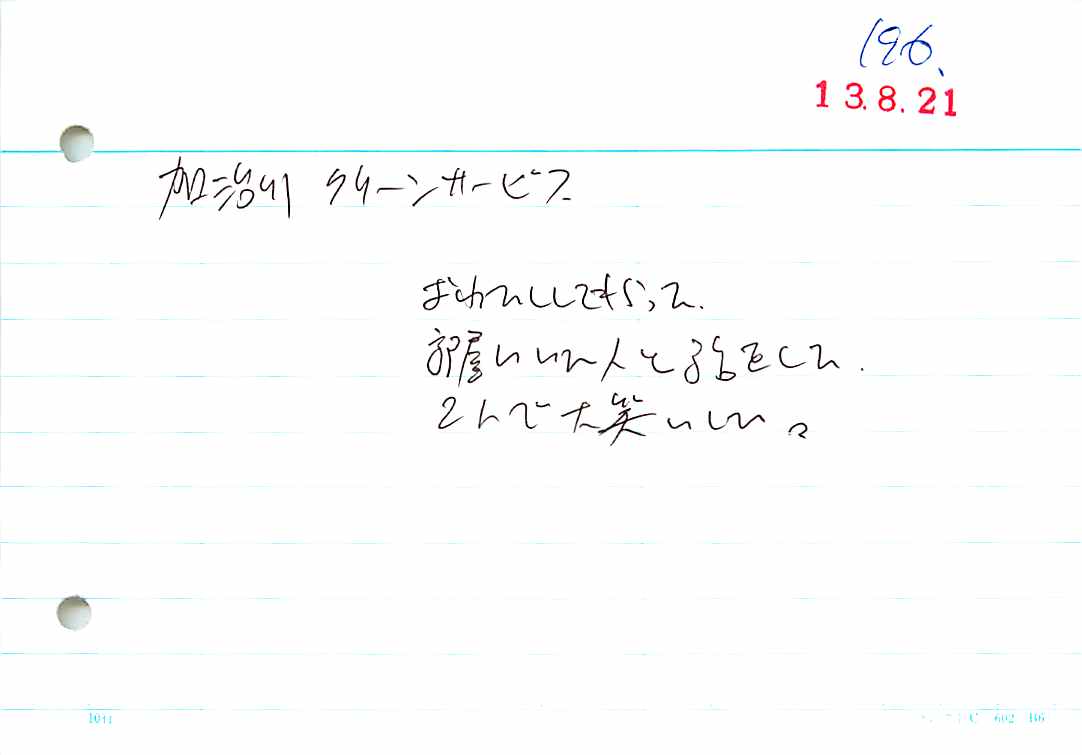 196.
13.8.21
加治川 クリーンサービス
おわんしてもらって.
部屋にいた人と話をした.
2人で大笑いした。
1041
602 B6